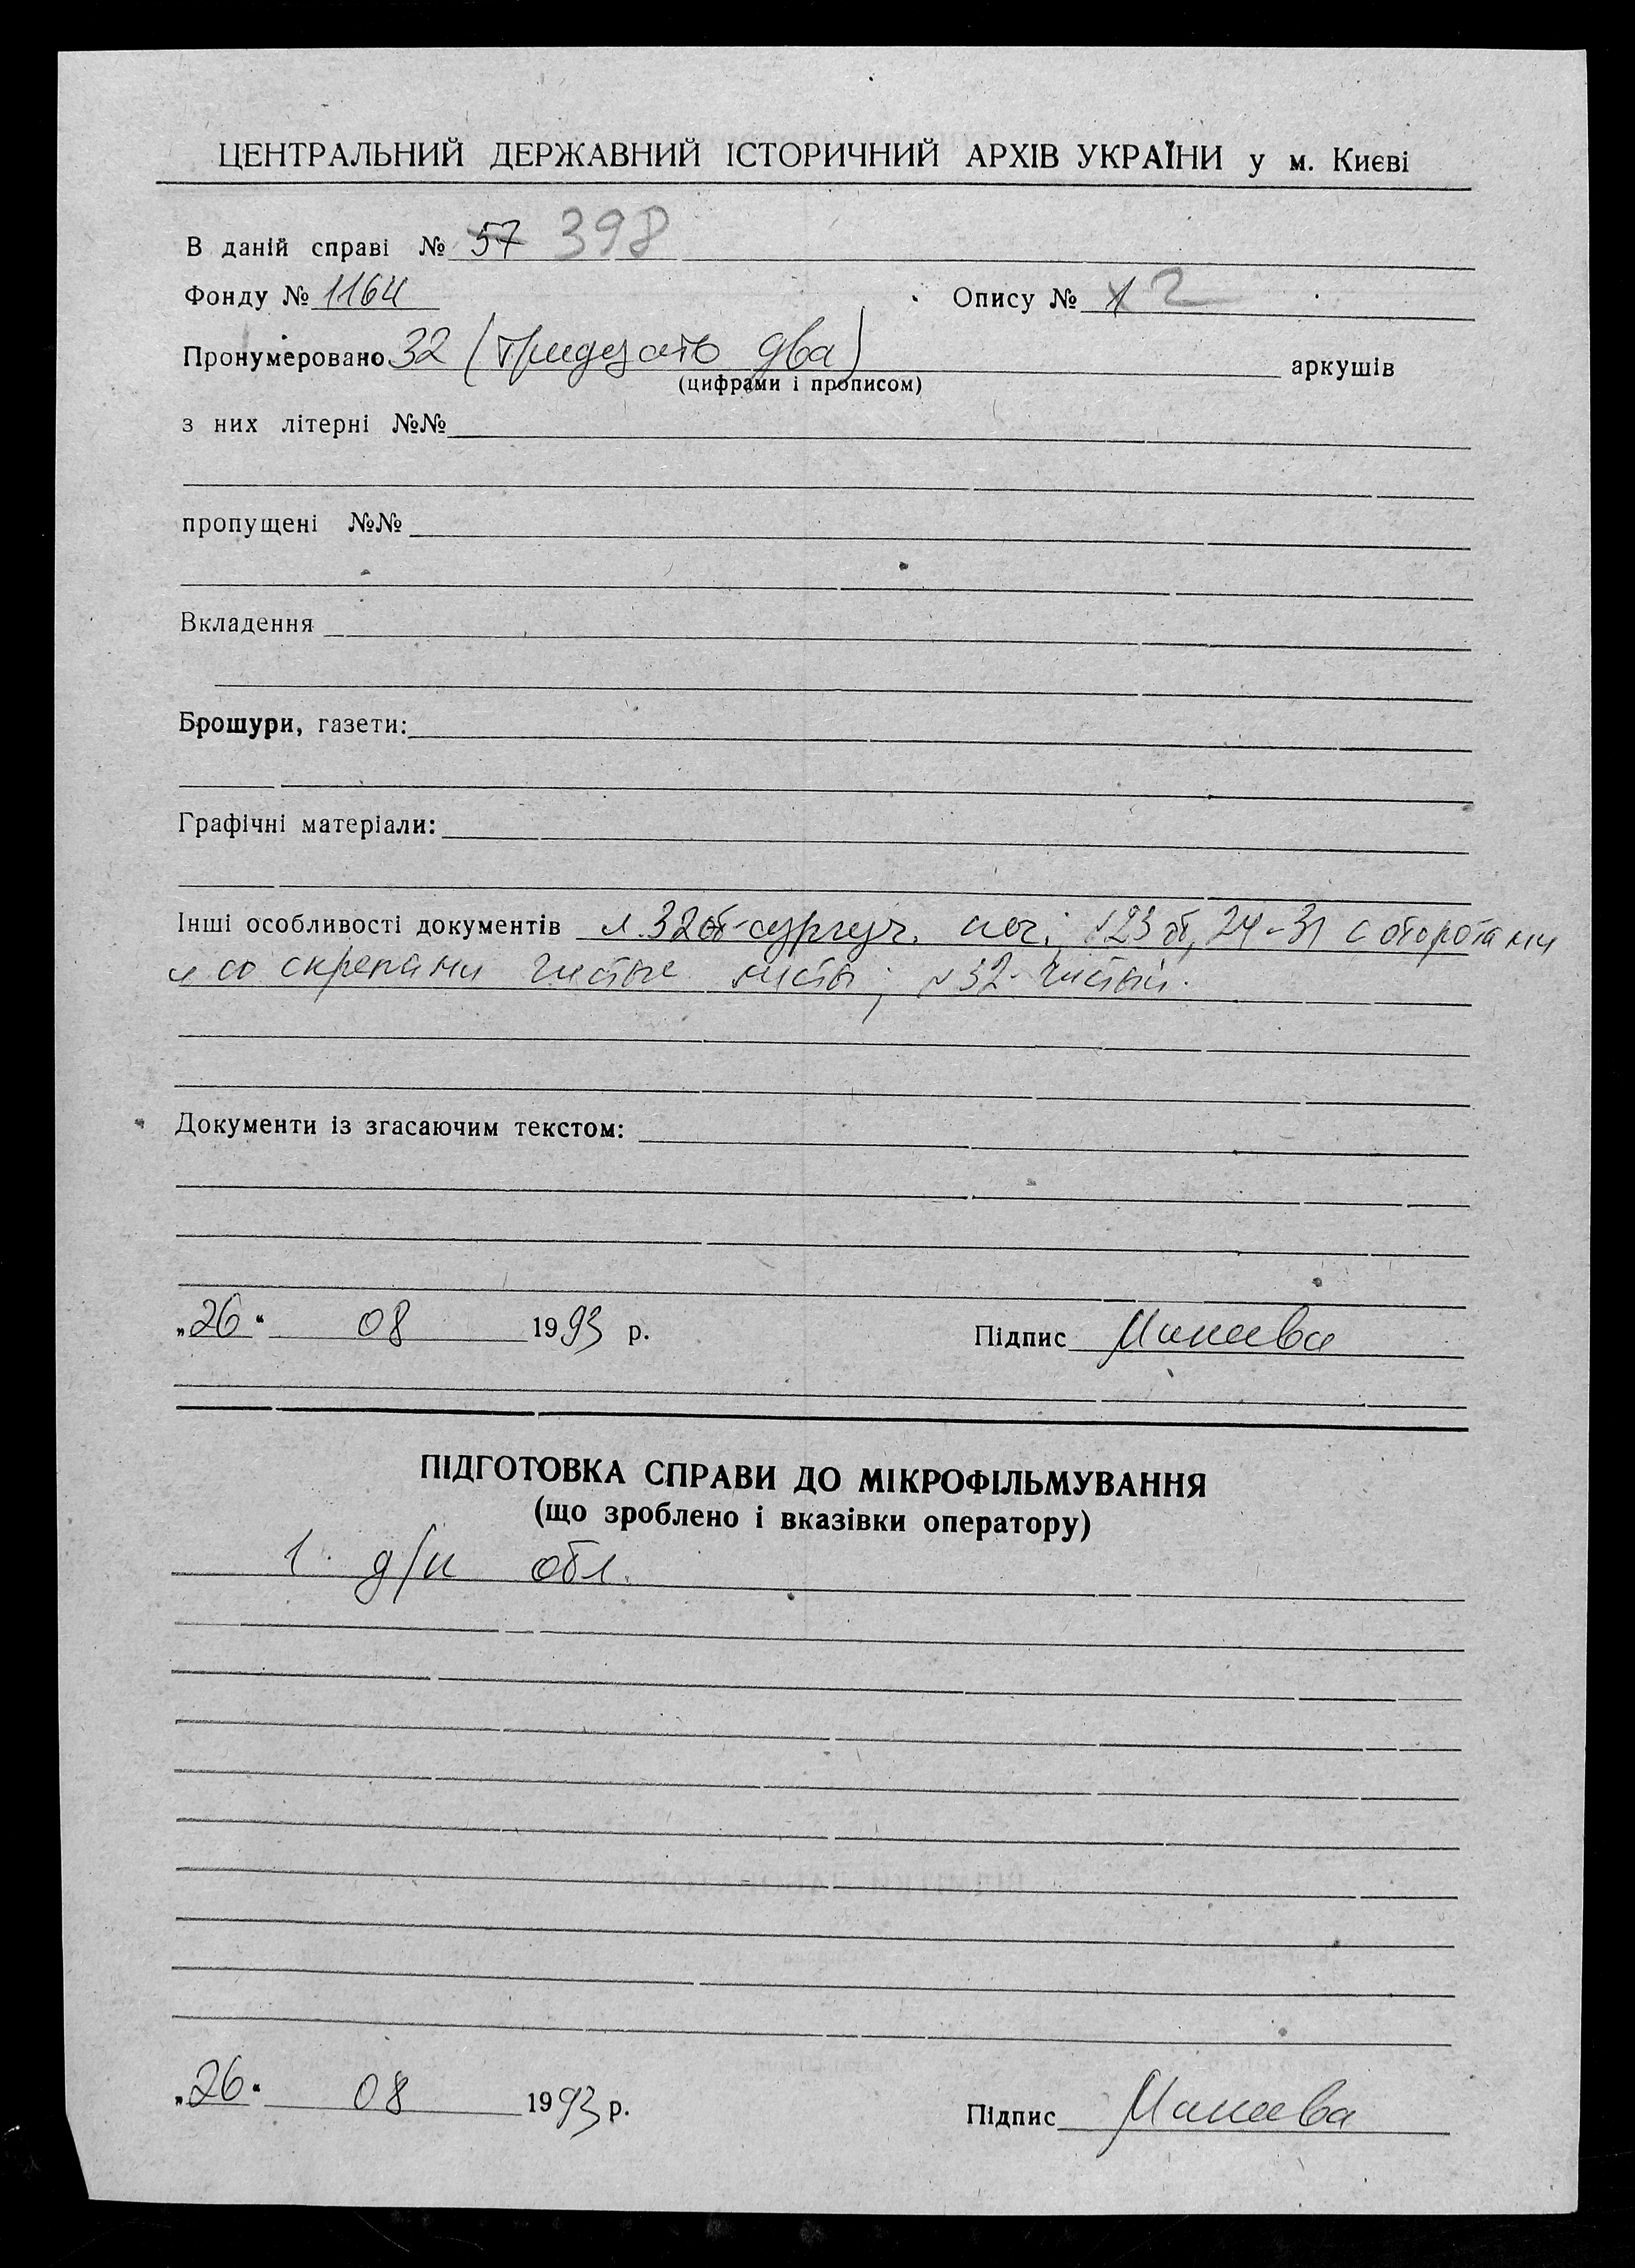 ЦЕНТРАЛЬНИЙ ДЕРЖАВНИЙ ІСТОРИЧНИЙ АРХІВ УКРАЇНИ у м. Києві
В даній справі № 57 398
Фонду № 1164 Опису № 1 2
Пронумеровано 32 (тридцать два) аркушів
(цифрами і прописом)
з них літерні №№
пропущені №№
Вкладення
Брошури, газети:
Графічні матеріали:
Інші особливості документів л. 32об-сургуч. печ; л23 об, 24-31 с оборотами
и со скрепами чистые листы; л32- чистый.
Документи із згасаючим текстом:
„26“ 08 1993 р. Підпис
ПІДГОТОВКА СПРАВИ ДО МІКРОФІЛЬМУВАННЯ
(що зроблено і вказівки оператору)
1. д/н обл.
„26“ 08 1993 р. Підпис